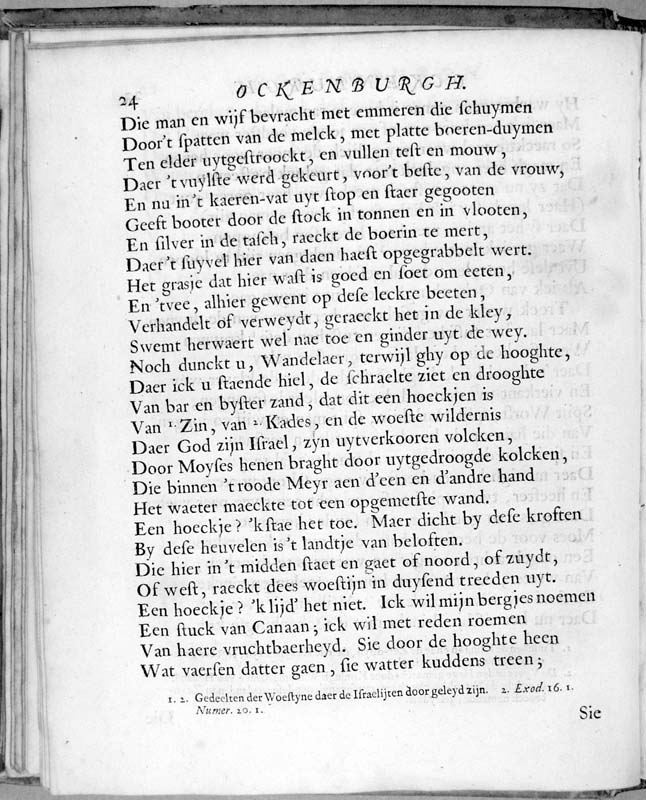 24 OCKENBURGH.
Die man en wijf bevracht met emmeren die ſchuymen
Door't ſpatten van de melck, met platte boeren-duymen
Ten elder uytgeſtroockt, en vullen teſt en mouw,
Daer 't vuylſte werd gekeurt, voor't beſte, van de vrouw,
En nu in't kaeren-vat uyt ſtop en ſtaer gegooten
Geeft booter door de ſtock in tonnen en in vlooten,
En ſilver in de taſch, raeckt de boerin te mert,
Daer't ſuyvel hier van daen haeſt opgegrabbelt wert.
Het grasje dat hier waſt is goed en ſoet om eeten,
En 'tvee, alhier gewent op deſe leckre beeten,
Verhandelt of verweydt, geraeckt het in de kley,
Swemt herwaert wel nae toe en ginder uyt de wey.
Noch dunckt u, Wandelaer, terwijl ghy op de hooghte,
Daer ick u ſtaende hiel, de ſchraelte ziet en drooghte
Van bar en byſter zand, dat dit een hoeckjen is
Van 1. Zin, van 2. Kades, en de woeſte wildernis
Daer God zijn Iſrael, zyn uytverkooren volcken,
Door Moyſes henen braght door uytgedroogde kolcken,
Die binnen 't roode Meyr aen d'een en d'andre hand
Het waeter maeckte tot een opgemetſte wand.
Een hoeckje? 'kſtae het toe. Maer dicht by deſe kroften
By deſe heuvelen is 't landtje van beloften.
Die hier in't midden ſtaet en gaet of noord, of zuydt,
Of weſt, raeckt dees woeſtijn in duyſend treeden uyt.
Een hoeckje? 'k lijd' het niet. Ick wil mijn bergjes noemen
Een ſtuck van Canaan; ick wil met reden roemen
Van haere vruchtbaerheyd. Sie door de hooghte heen
Wat vaerſen datter gaen, ſie watter kuddens treen;
1. 2. Gedeelten der Woeſtyne daer de Iſraelijten door geleyd zijn. 2. Exod. 16. 1.
Numer. 20. 1.
Sie